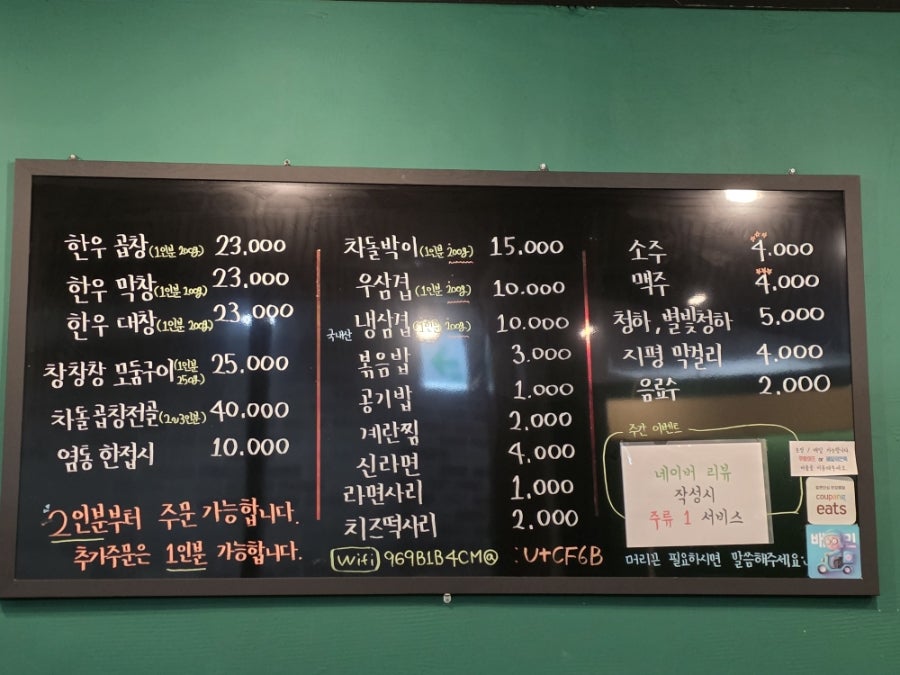 한우 곱창(1인분 200g) 23.000
한우 막창(1인분 200g) 23.000
한우 대창(1인분 200g) 23.000
창창창 모둠구이(1인분 250g) 25.000
차돌곱창전골(2~3인분) 40.000
염통 한접시 10.000
2인분부터 주문 가능합니다.
추가주문은 1인분 가능합니다.
차돌박이(1인분 200g) 15.000
우삼겹(1인분 200g) 10.000
국내산 냉삼겹(1인분 200g) 10.000
볶음밥 3.000
공기밥 1.000
계란찜 2.000
신라면 4.000
라면사리 1.000
치즈떡사리 2.000
Wifi 969B1B4CM@ : U+CF6B
소주 4.000
맥주 4.000
청하, 별빛청하 5.000
지평 막걸리 4.000
음료수 2.000
주간 이벤트
네이버 리뷰
작성시
주류 1 서비스
머리끈 필요하시면 말씀해주세요
coupang
eats